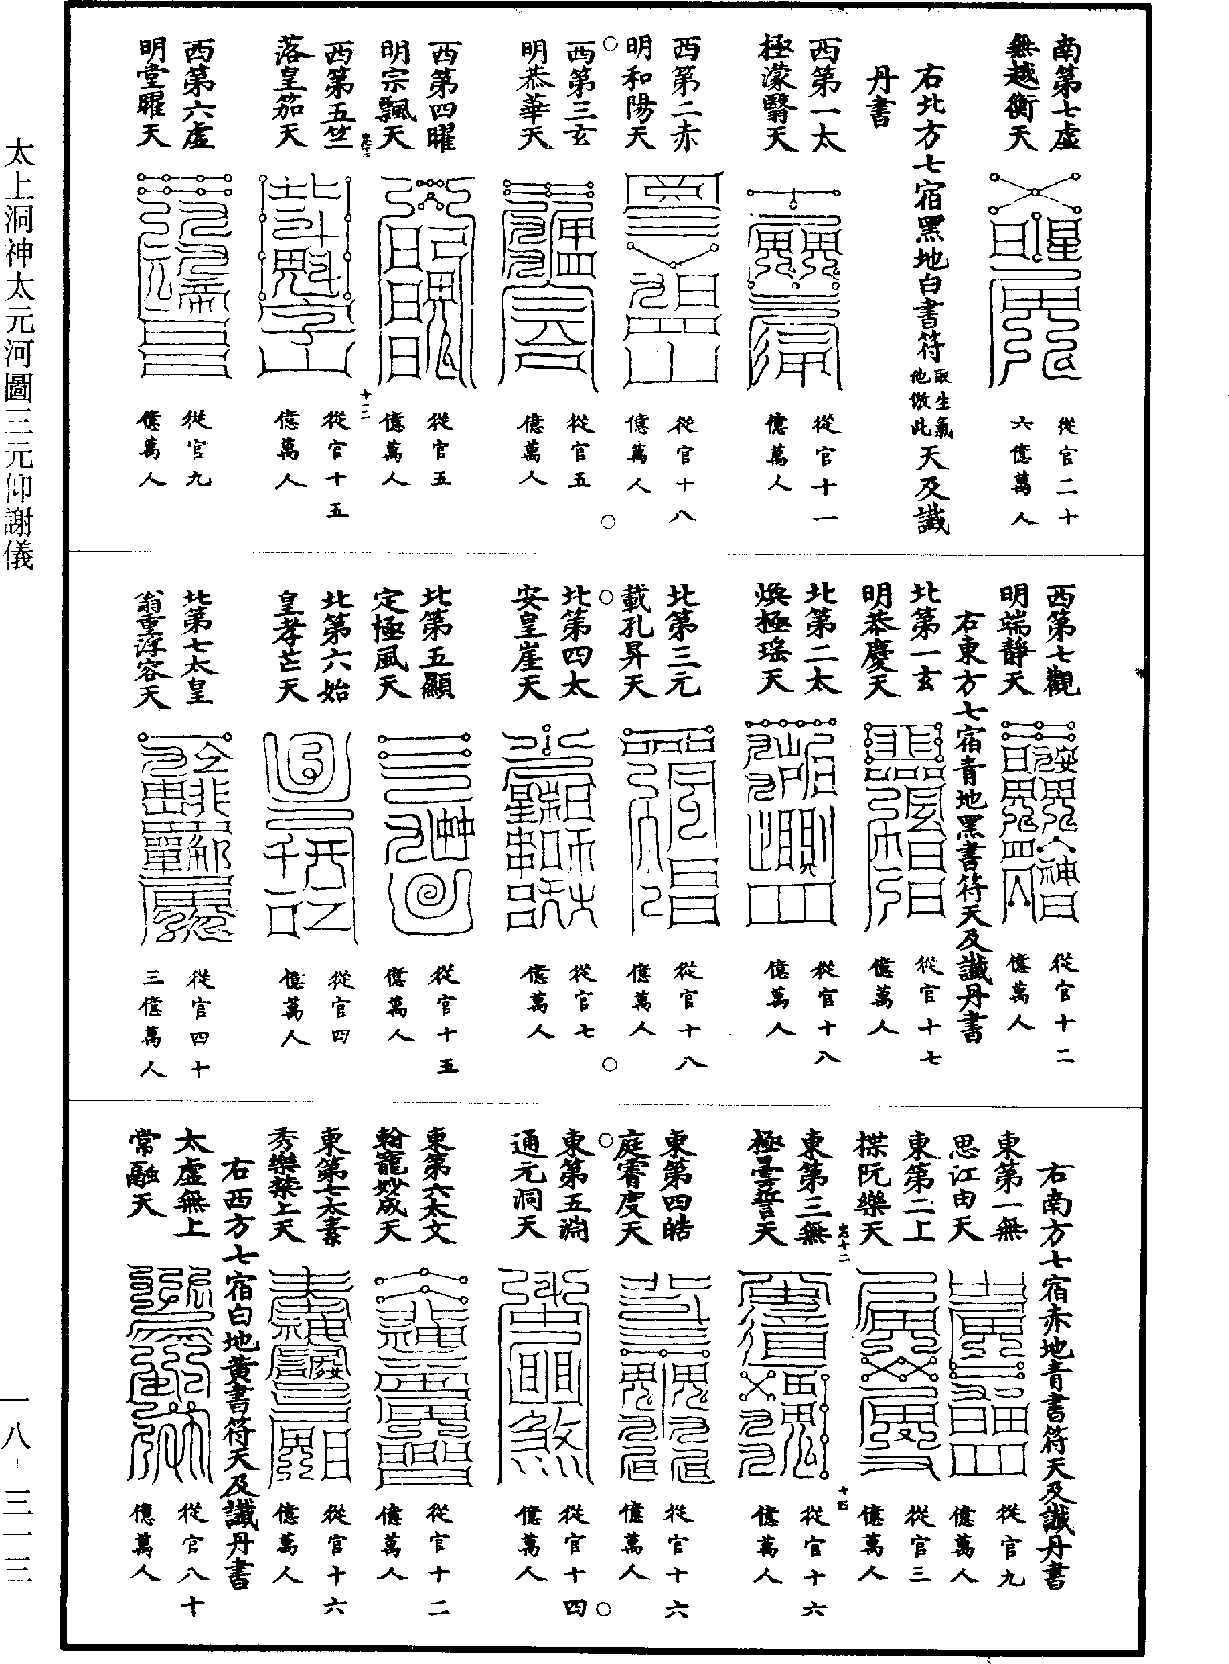 太上洞神太元河圖三元仰謝儀
一八-三一三
南第七虛
無越衡天
從官二十
六億萬人
右北方七宿黑地白書符取生氣他倣此天及讖
丹書
西第一太
極濛翳天
從官十一
億萬人
西第二赤
明和陽天
從官十八
億萬人
西第三玄
明恭華天
從官五
億萬人
西第四曜
明宗飄天
從官五
億萬人
十二
西第五竺
落皇笳天
從官十五
億萬人
西第六虛
明堂曜天
從官九
億萬人
西第七觀
明端靜天
從官十二
億萬人
右東方七宿青地黑書符天及讖丹書
北第一玄
明恭慶天
從官十七
億萬人
北第二太
煥極瑤天
從官十八
億萬人
北第三元
載孔昇天
從官十八
億萬人
北第四太
安皇崖天
從官七
億萬人
北第五顯
定極風天
從官十五
億萬人
北第六始
皇孝芒天
從官四
億萬人
北第七太皇
翁重浮容天
從官四十
三億萬人
右南方七宿赤地青書符天及讖丹書
東第一無
思江由天
從官九
億萬人
東第二上
揲阮樂天
從官三
億萬人
十四
東第三無
極曇誓天
從官十六
億萬人
東第四皓
庭霄度天
從官十六
億萬人
東第五淵
通元洞天
從官十四
億萬人
東第六太文
翰寵妙成天
從官十二
億萬人
東第七太素
秀樂禁上天
從官十六
億萬人
右西方七宿白地黃書符天及讖丹書
太虛無上
常融天
從官八十
億萬人